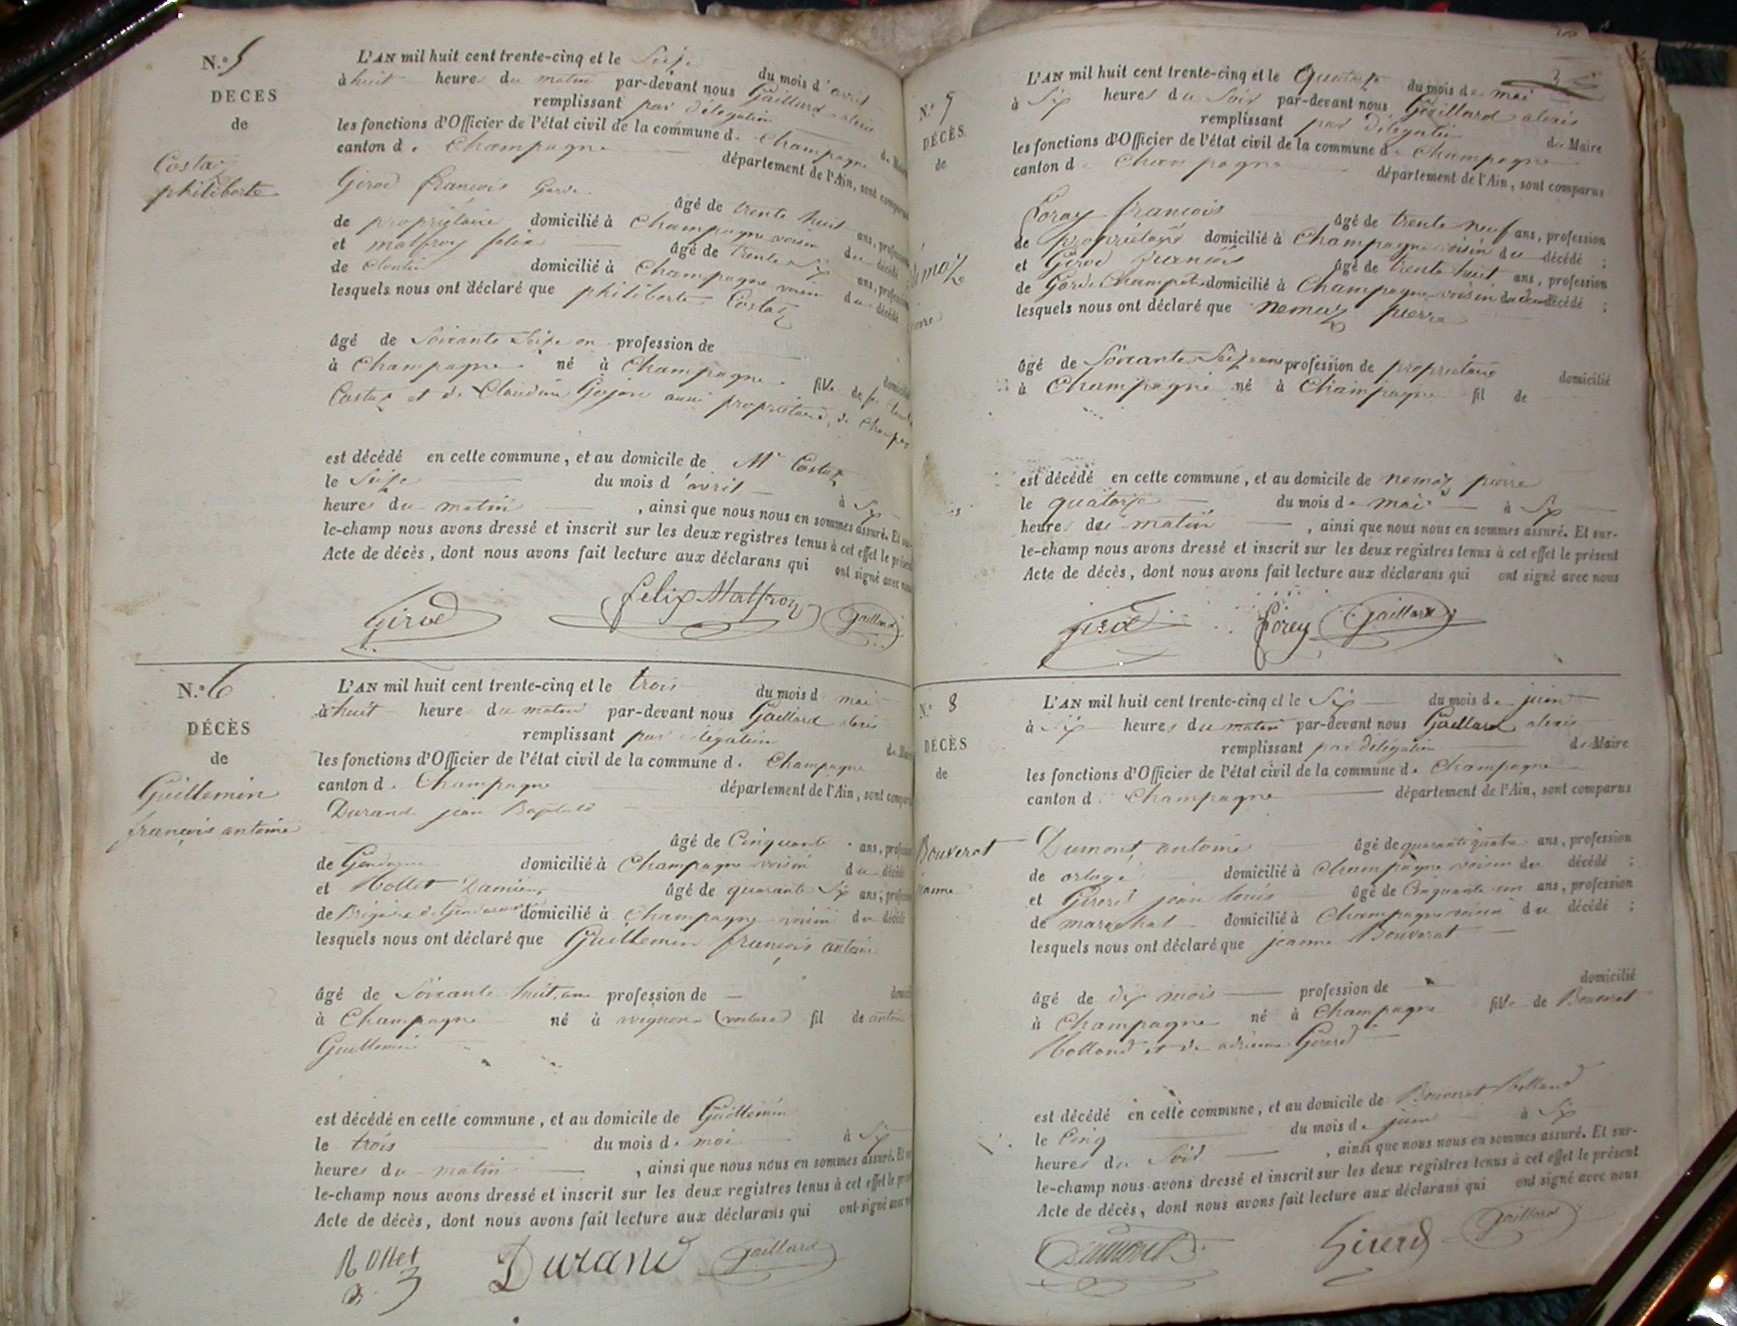 N.° 5
DECES
de
Costaz
philiberte
L'AN mil huit cent trente-cinq et le Seize du mois d'avril
à huit heures du matin par-devant nous Gaillard alexis
remplissant par délégation
les fonctions d'Officier de l'état civil de la commune de Champagne de Maire
canton de Champagne département de l'Ain, sont comparus
Girod françois Garde
âgé de trente huit ans, profession
de propriétaire domicilié à Champagne voisin du décédé
et malfroy felix âgé de trente six ans, profession
de domicilié à Champagne voisin du décédé
lesquels nous ont déclaré que philiberte Costaz
âgé de Soixante Seize an profession de
à Champagne né à Champagne fille de feu
Costaz et de Claudine Gojon aussi propriétaire, de
est décédé en cette commune, et au domicile de Mr Costaz
le Seize du mois d'avril à Six
heures du matin, ainsi que nous nous en sommes assuré. Et sur-
le-champ nous avons dressé et inscrit sur les deux registres tenus à cet effet le présent
Acte de décès, dont nous avons fait lecture aux déclarans qui ont signé avec nous
Girod Felix Malfroy Gaillard
N.° 6
DÉCÈS
de
Guillemin
françois antoine
L'AN mil huit cent trente-cinq et le trois du mois de mai
à huit heures du matin par-devant nous Gaillard alexis
remplissant par délégation
les fonctions d'Officier de l'état civil de la commune de Champagne de Maire
canton de Champagne département de l'Ain, sont comparus
Durand jean Baptiste
âgé de Cinquante ans, profession
de Gendarme domicilié à Champagne voisin du décédé
et Rollet Damien âgé de quarante Six ans, profession
de Brigadier de Gendarmerie domicilié à Champagne voisin du décédé
lesquels nous ont déclaré que Guillemin françois antoine
âgé de Soixante huit ans profession de —
à Champagne né à fil de antoine
Guillemin
est décédé en cette commune, et au domicile de Guillemin
le trois du mois de mai à Six
heures du matin, ainsi que nous nous en sommes assuré. Et sur-
le-champ nous avons dressé et inscrit sur les deux registres tenus à cet effet le présent
Acte de décès, dont nous avons fait lecture aux déclarans qui ont signé avec nous
Rollet Durand Gaillard
N.° 7
DÉCÈS
de
nemoz
pierre
L'AN mil huit cent trente-cinq et le Quatorze du mois de mai
à Six heures du Soir par-devant nous Gaillard alexis
remplissant par délégation de Maire
les fonctions d'Officier de l'état civil de la commune de Champagne
canton de Champagne département de l'Ain, sont comparus
Forey françois
âgé de trente neuf ans, profession
de propriétaire domicilié à Champagne voisin du décédé ;
et Girod françois âgé de trente huit ans, profession
de Garde Champêtre domicilié à Champagne voisin du décédé ;
lesquels nous ont déclaré que nemoz pierre
âgé de Soixante Seize ans profession de propriétaire domicilié
à Champagne né à Champagne fil de
est décédé en cette commune, et au domicile de nemoz pierre
le quatorze du mois de mai à Six
heures du matin, ainsi que nous nous en sommes assuré. Et sur-
le-champ nous avons dressé et inscrit sur les deux registres tenus à cet effet le présent
Acte de décès, dont nous avons fait lecture aux déclarans qui ont signé avec nous
Girod Forey Gaillard
N.° 8
DÉCÈS
de
Bouverot
jeanne
L'AN mil huit cent trente-cinq et le Six du mois de juin
à Six heures du matin par-devant nous Gaillard alexis
remplissant par délégation de Maire
les fonctions d'Officier de l'état civil de la commune de Champagne
canton de Champagne département de l'Ain, sont comparus
Dumont antoine âgé de ans, profession
de domicilié à Champagne voisin du décédé ;
et Girerd jean louis âgé de Cinquante un ans, profession
de marechal domicilié à Champagne voisin du décédé ;
lesquels nous ont déclaré que jeanne Bouverot
âgé de dix mois profession de — domicilié
à Champagne né à Champagne fille de Bouverot
Rolland et de adrienne Girerd
est décédé en cette commune, et au domicile de Bouverot Rolland
le Cinq du mois de juin à Six
heures du Soir, ainsi que nous nous en sommes assuré. Et sur-
le-champ nous avons dressé et inscrit sur les deux registres tenus à cet effet le présent
Acte de décès, dont nous avons fait lecture aux déclarans qui ont signé avec nous
Dumont Girerd Gaillard